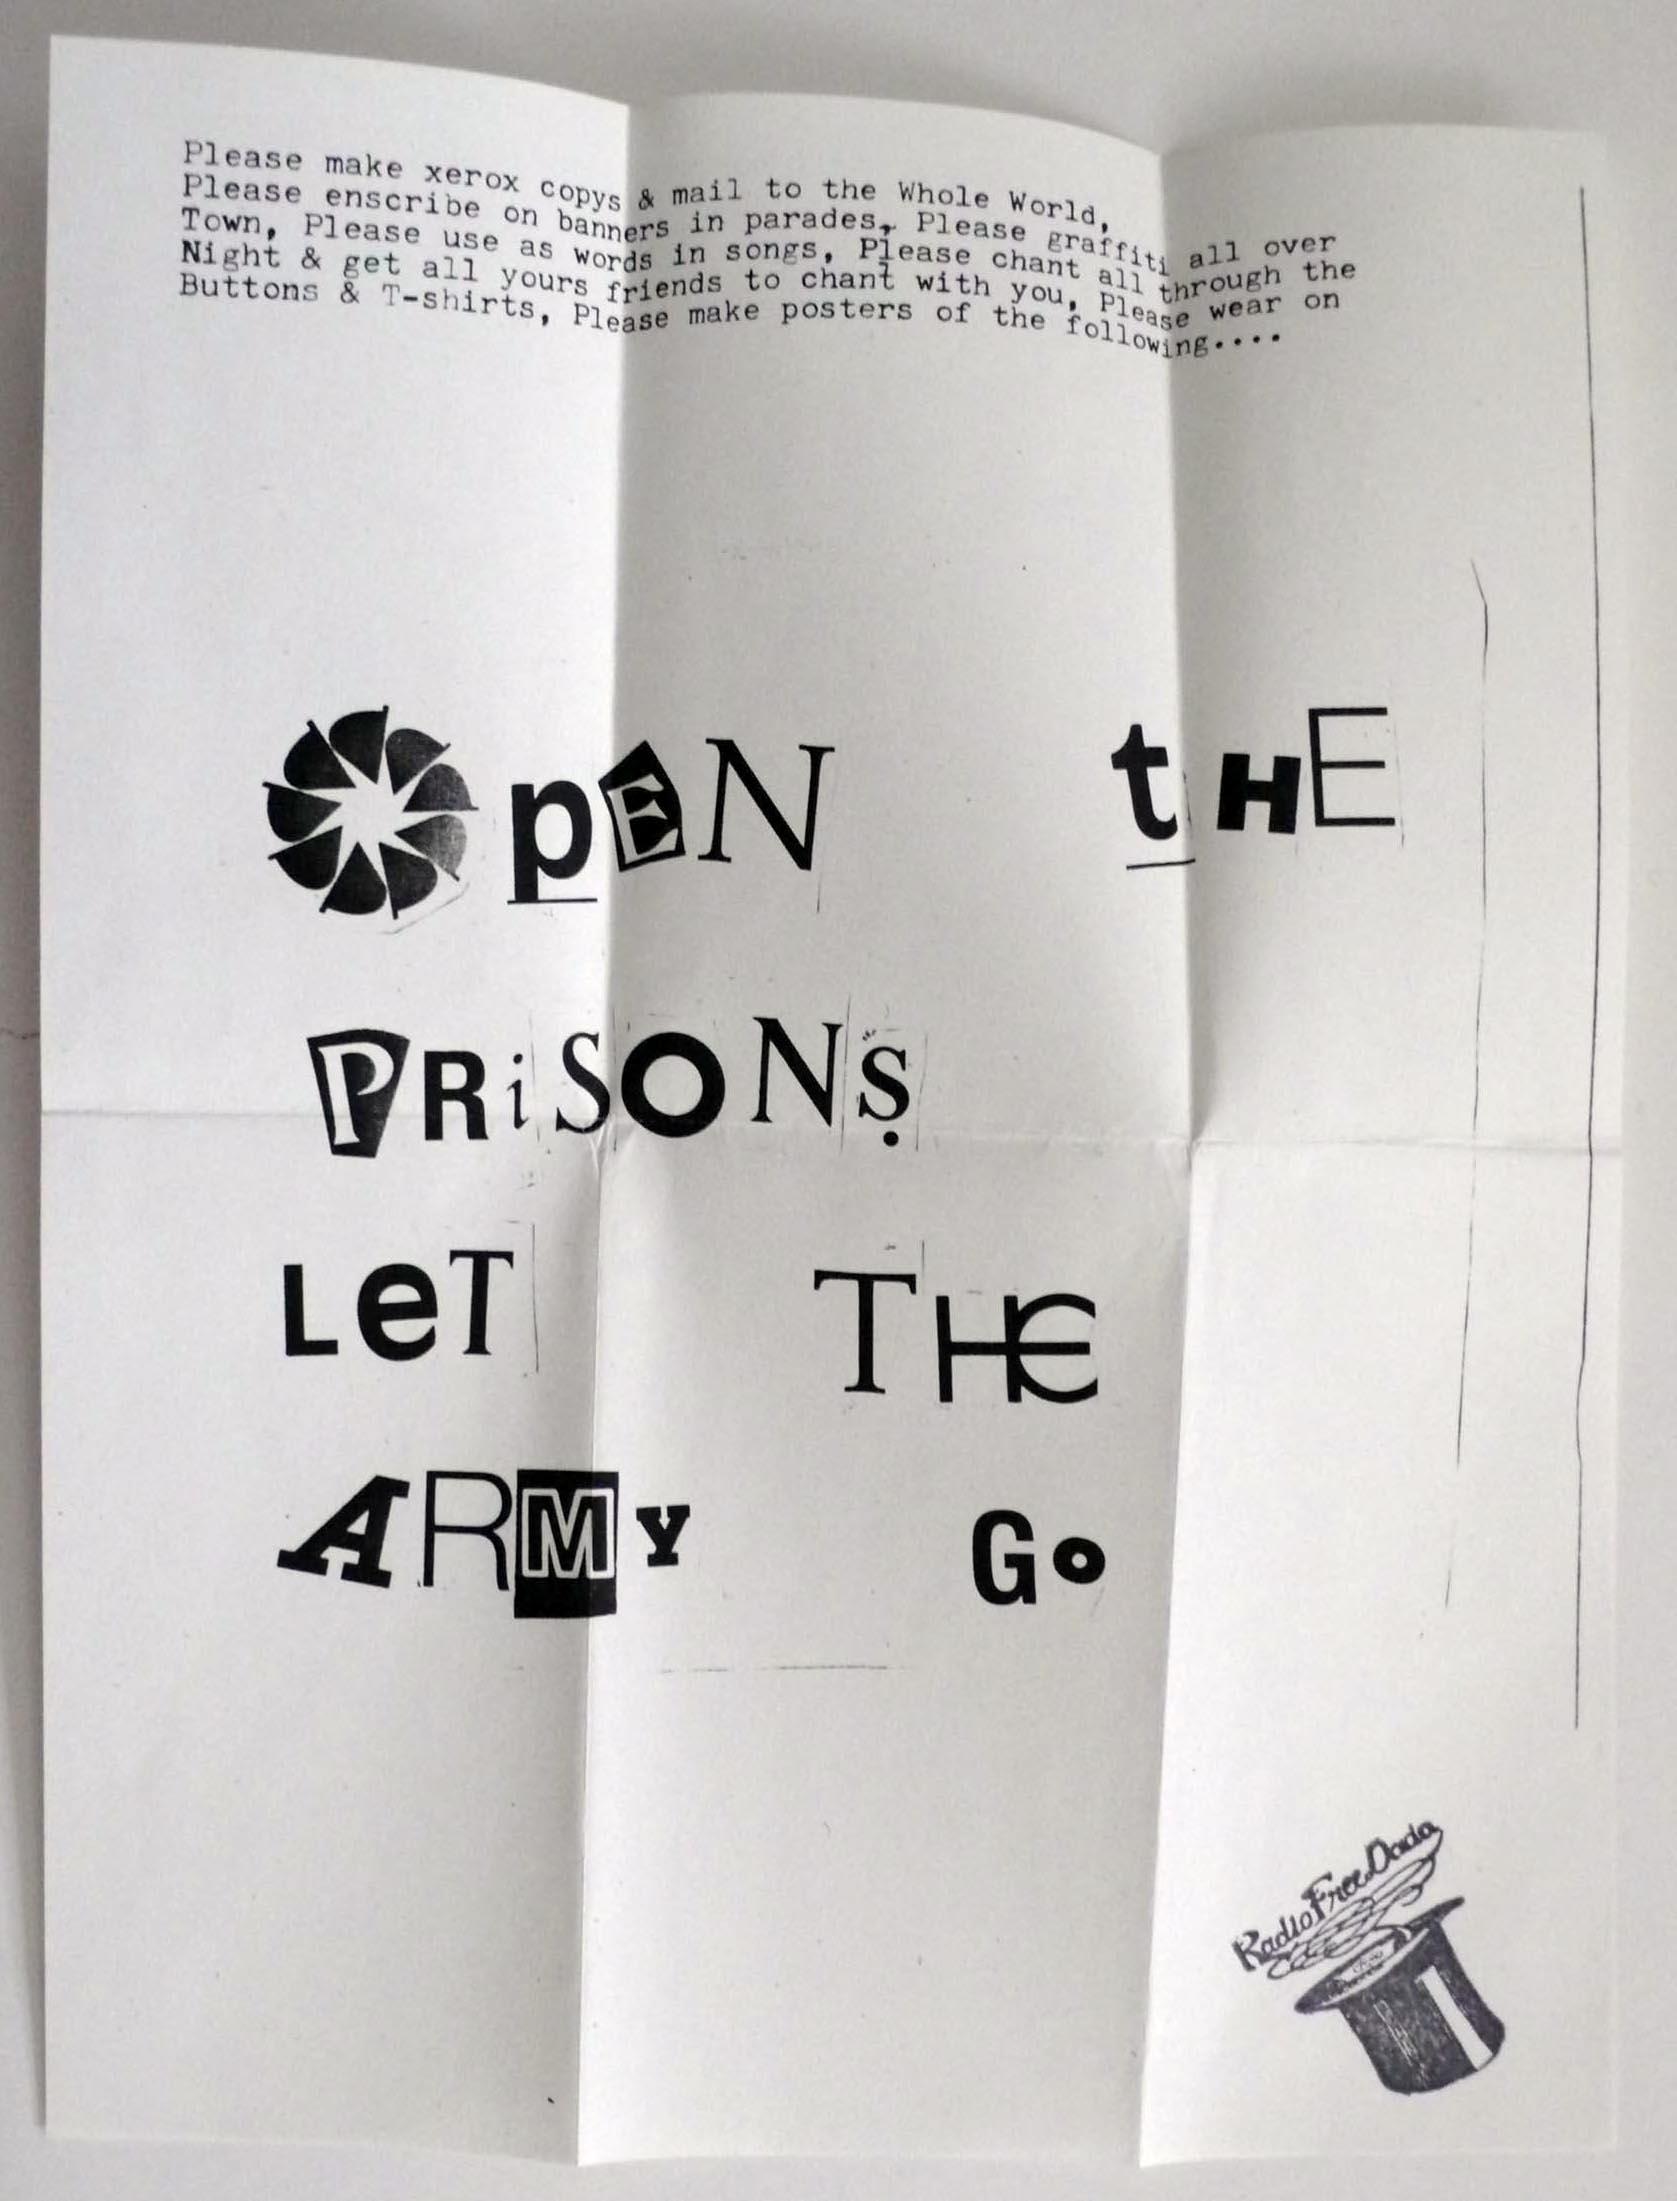 Please make xerox copys & mail to the Whole World,
Please enscribe on banners in parades, Please graffiti all over
Town, Please use as words in songs, Please chant all through the
Night & get all yours friends to chant with you, Please wear on
Buttons & T-shirts, Please make posters of the following....
OpEN tHE
PRiSONS
LeT THE
ARMY Go
Radio Free Dada